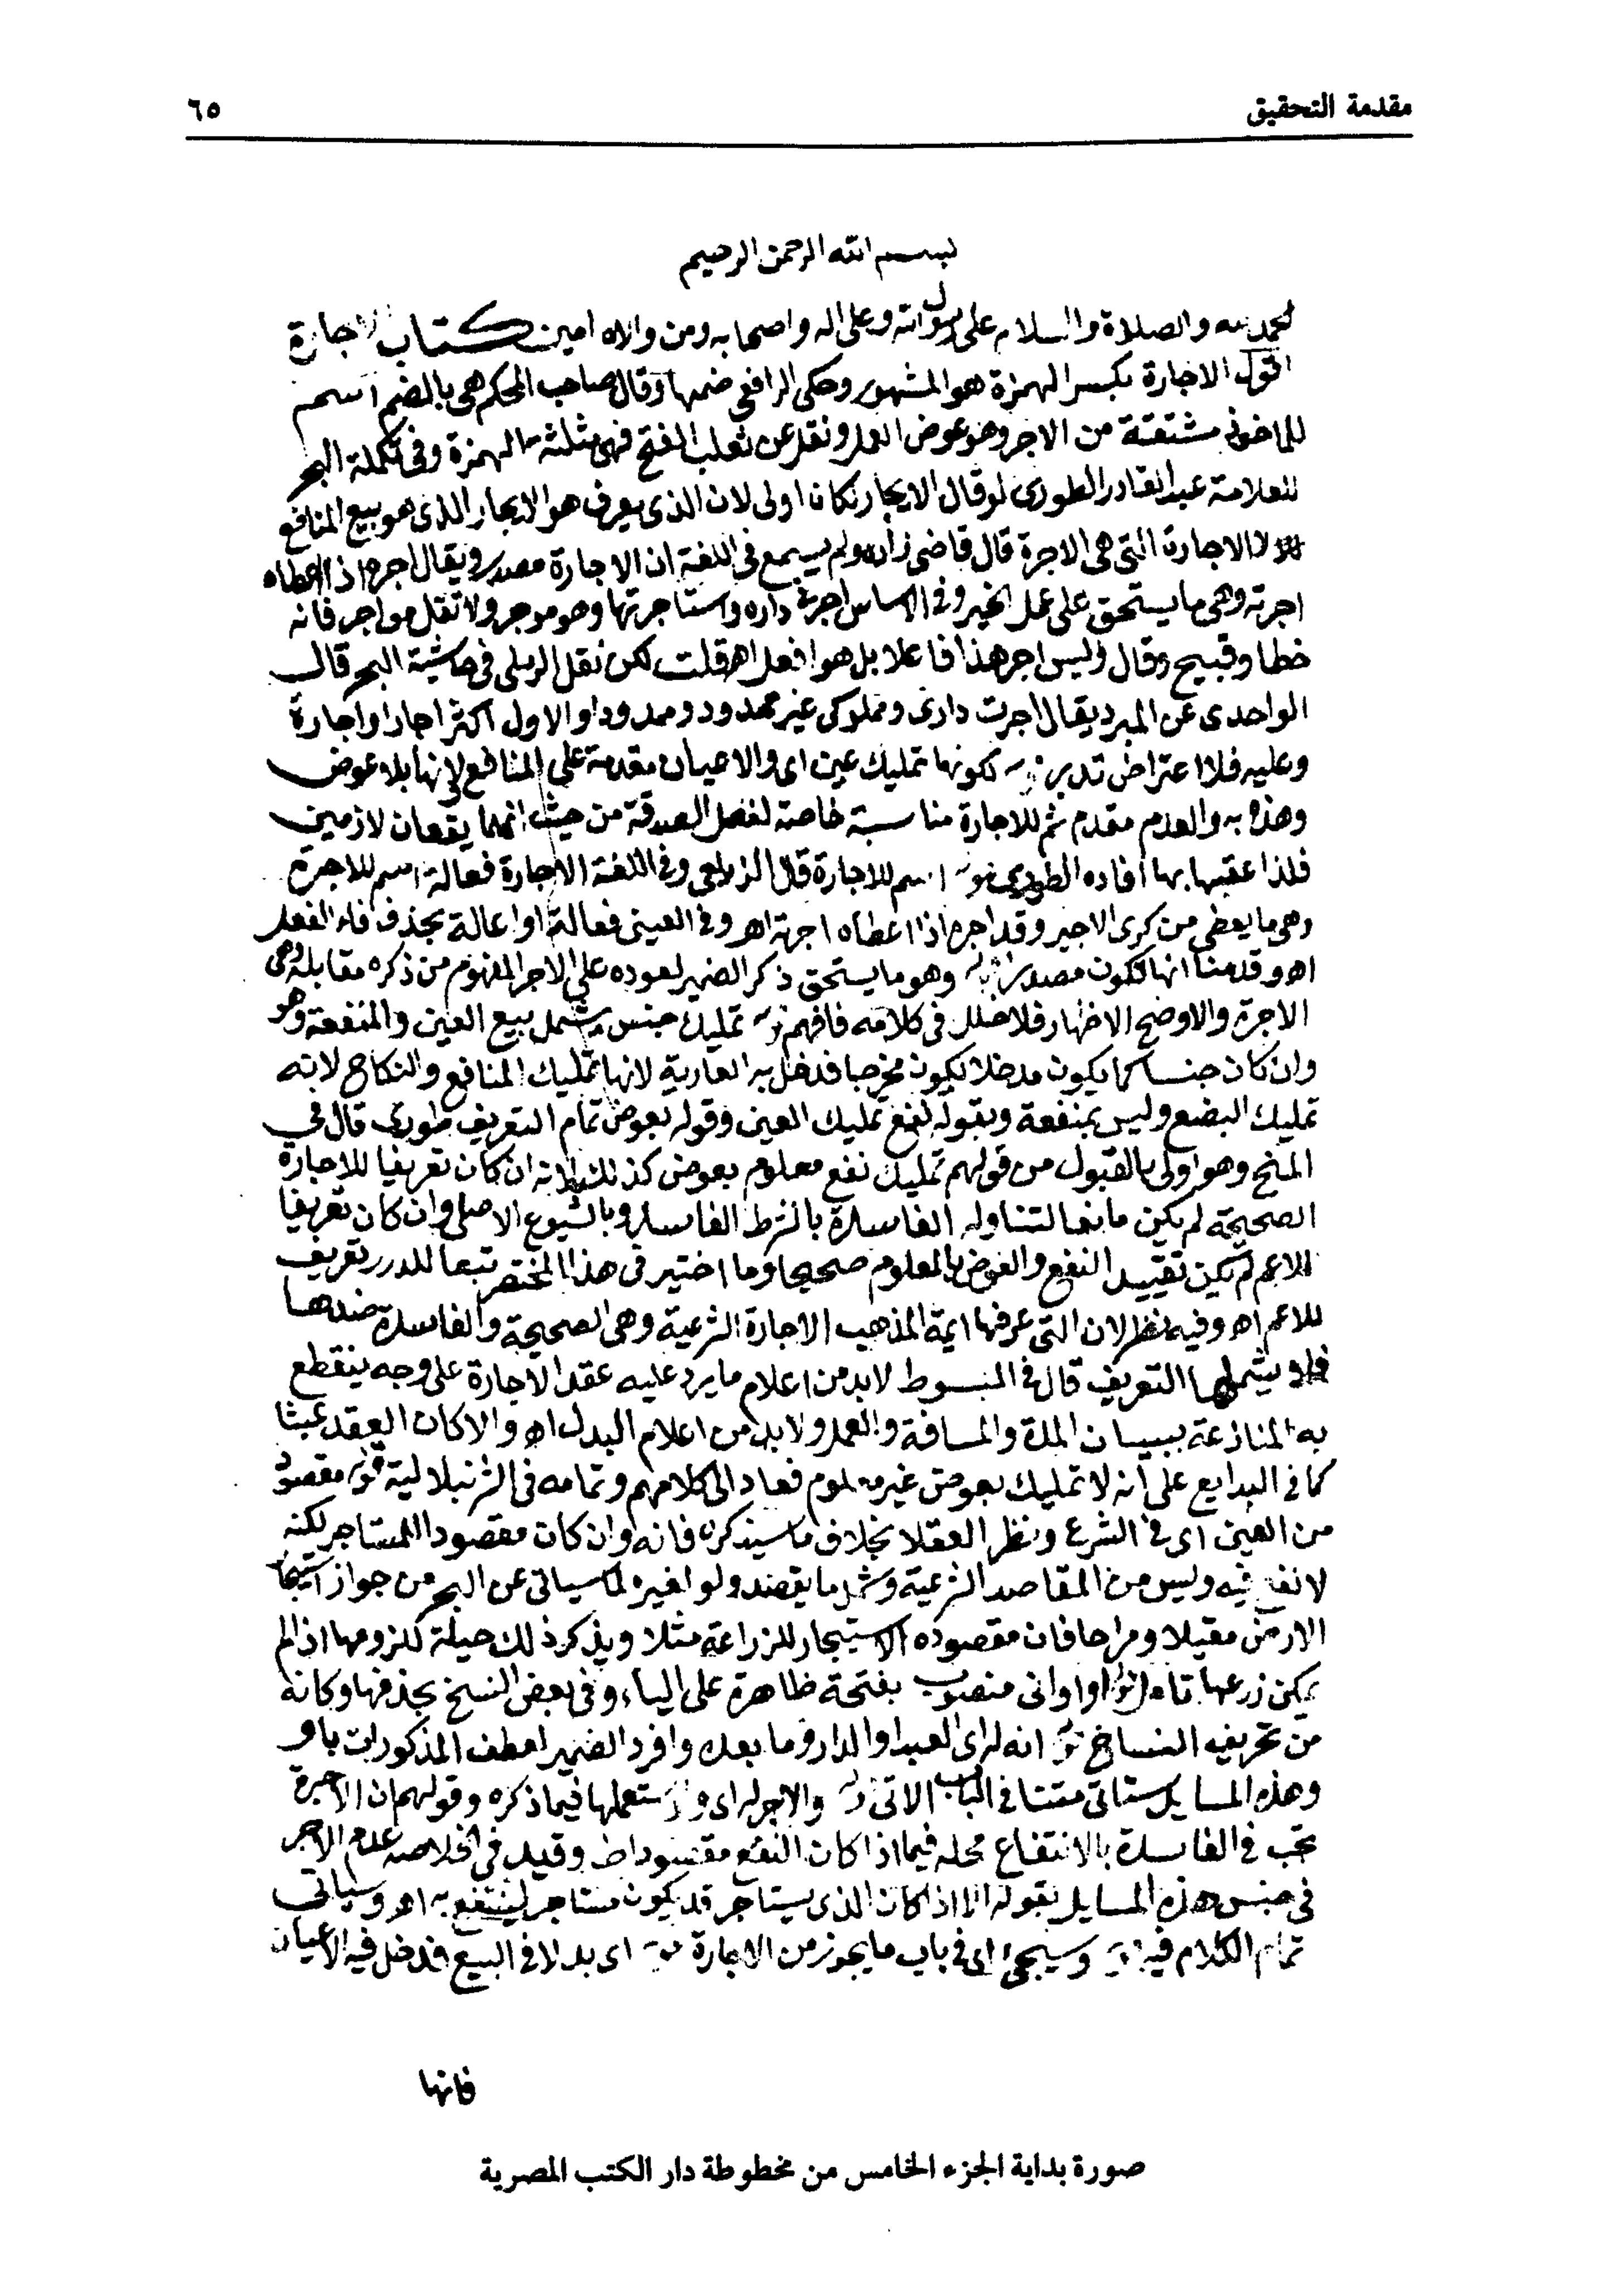 مقدمة التحقيق
٦٥
بسم الله الرحمن الرحيم
لحمد لله والصلاة والسلام على رسول الله وعلى اله واصحابه ومن والاه امين كتاب الاجارة
اقول الاجارة بكسر الهمزة هو المشهور وحكى الرافعى ضمها وقال صاحب المحكم هى بالضم اسم
للماخوذ مشتقة من الاجر وهو عوض العمل ونقل عن ثعلب الفتح فهى مثلثة الهمزة وفى تكملة البحر
للعلامة عبد القادر الطورى لو قال الايجار لكان اولى لان الذى يعرف هو الايجار الذى هو بيع المنافع
لا الاجارة التى هى الاجرة قال قاضى زاده ولم يسمع فى اللغة ان الاجارة مصدر ويقال اجره اذا اعطاه
اجرته وهى ما يستحق على عمل الخير وفى الاساس اجرنى داره واستاجرتها وهو موجر ولا تقل مواجر فانه
خطا وقبيح وقال وليس اجر هذا فاعلا بل هو افعل اهـ قلت لكن نقل الرملى فى حاشية البحر قال
الواحدى عن المبرد يقال اجرت دارى ومملوكى غير ممدود وممدودا والاول اكثر اجارا واجارة
وعليه فلا اعتراض تدبر كونها تمليك عين اى والاعيان مقدمة على المنافع لانها بلا عوض
وهذه به والعدم مقدم ثم للاجارة مناسبة خاصة لفصل الصدقة من حيث انهما يقعان لازمين
فلذا عقبها بها افاده الطورى اسم للاجارة قال الزيلعى وفى اللغة الاجارة فعالة اسم للاجرة
وهى ما يعطى من كرى الاجير وقد اجره اذا اعطاه اجرته اهـ وفى العينى فعالة او اعالة بحذف فاء الفعل
اهـ وقدمنا انها تكون مصدرا وهو ما يستحق ذكر الضمير لعوده على الاجر المفهوم من ذكره مقابله وهى
الاجرة والاوضح الاظهار فلا خلل فى كلامه فافهم تمليك جنس يشمل بيع العين والمنفعة وهو
وان كان جنسا كما يكون مدخلا يكون مخرجا فدخل به العارية لانها تمليك المنافع والنكاح لانه
تمليك البضع وليس بمنفعة وبقوله نفع تمليك العين وقوله بعوض تمام التعريف طورى قال فى
المنح وهو اولى بالقبول من قولهم تمليك نفع معلوم بعوض كذلك لانه ان كان تعريفا للاجارة
الصحيحة لم يكن مانعا لتناوله الفاسدة بالشرط الفاسد وبالشيوع الاصلى وان كان تعريفا
للاعم لم يكن تقييد النفع والعوض بالمعلوم صحيحا وما اختير فى هذا المختصر تبعا للدرر تعريف
للاعم اهـ وفيه نظر لان التى عرفها ايمة المذهب الاجارة الشرعية وهى الصحيحة والفاسدة ضدها
فلا يشملها التعريف قال فى المبسوط لابد من اعلام ما يرد عليه عقد الاجارة على وجه ينقطع
به المنازعة ببيان المدة والمسافة والعمل ولابد من اعلام البدل اهـ والا كان العقد عبثا
كما فى البدايع على انه لا تمليك بعوض غير معلوم فعاد الى كلامهم وتمامه فى الشرنبلالية قوله مقصود
من العين اى فى الشرع ونظر العقلا بخلاف ما سيذكره فانه وان كان مقصودا للمستاجر لكنه
لا نفع فيه وليس من المقاصد الشرعية وشمل ما يقصد ولو لغيره لما سياتى عن البحر من جواز استيجار
الارض مقيلا ومراحا فان مقصوده الاستيجار للزراعة مثلا ويذكر ذلك حيلة للزومها اذا لم
يمكن زرعها تامل او اوانى منصوب بفتحة ظاهرة على الياء وفى بعض النسخ بحذفها وكانه
من تحريف النساخ انه له اى العبد او الدار وما بعده وافرد الضمير لعطف المذكورات باو
وهذه المسايل ستاتى متنا فى الباب الاتى والاجر له اى ولو استعملها فيما ذكره وقولهم ان الاجرة
تجب فى الفاسدة بالانتفاع محله فيما اذا كان النفع مقصودا ط وقيد فى الخلاصة عدم الاجر
فى جنس هذه المسايل بقوله الا اذا كان الذى يستاجر قد يكون مستاجر لينتفع به اهـ وسياتى
تمام الكلام فيه وسيجئ اى فى باب ما يجوز من الاجارة اى بدلا فى البيع فدخل فيه الاعيان
فانها
صورة بداية الجزء الخامس من مخطوطة دار الكتب المصرية